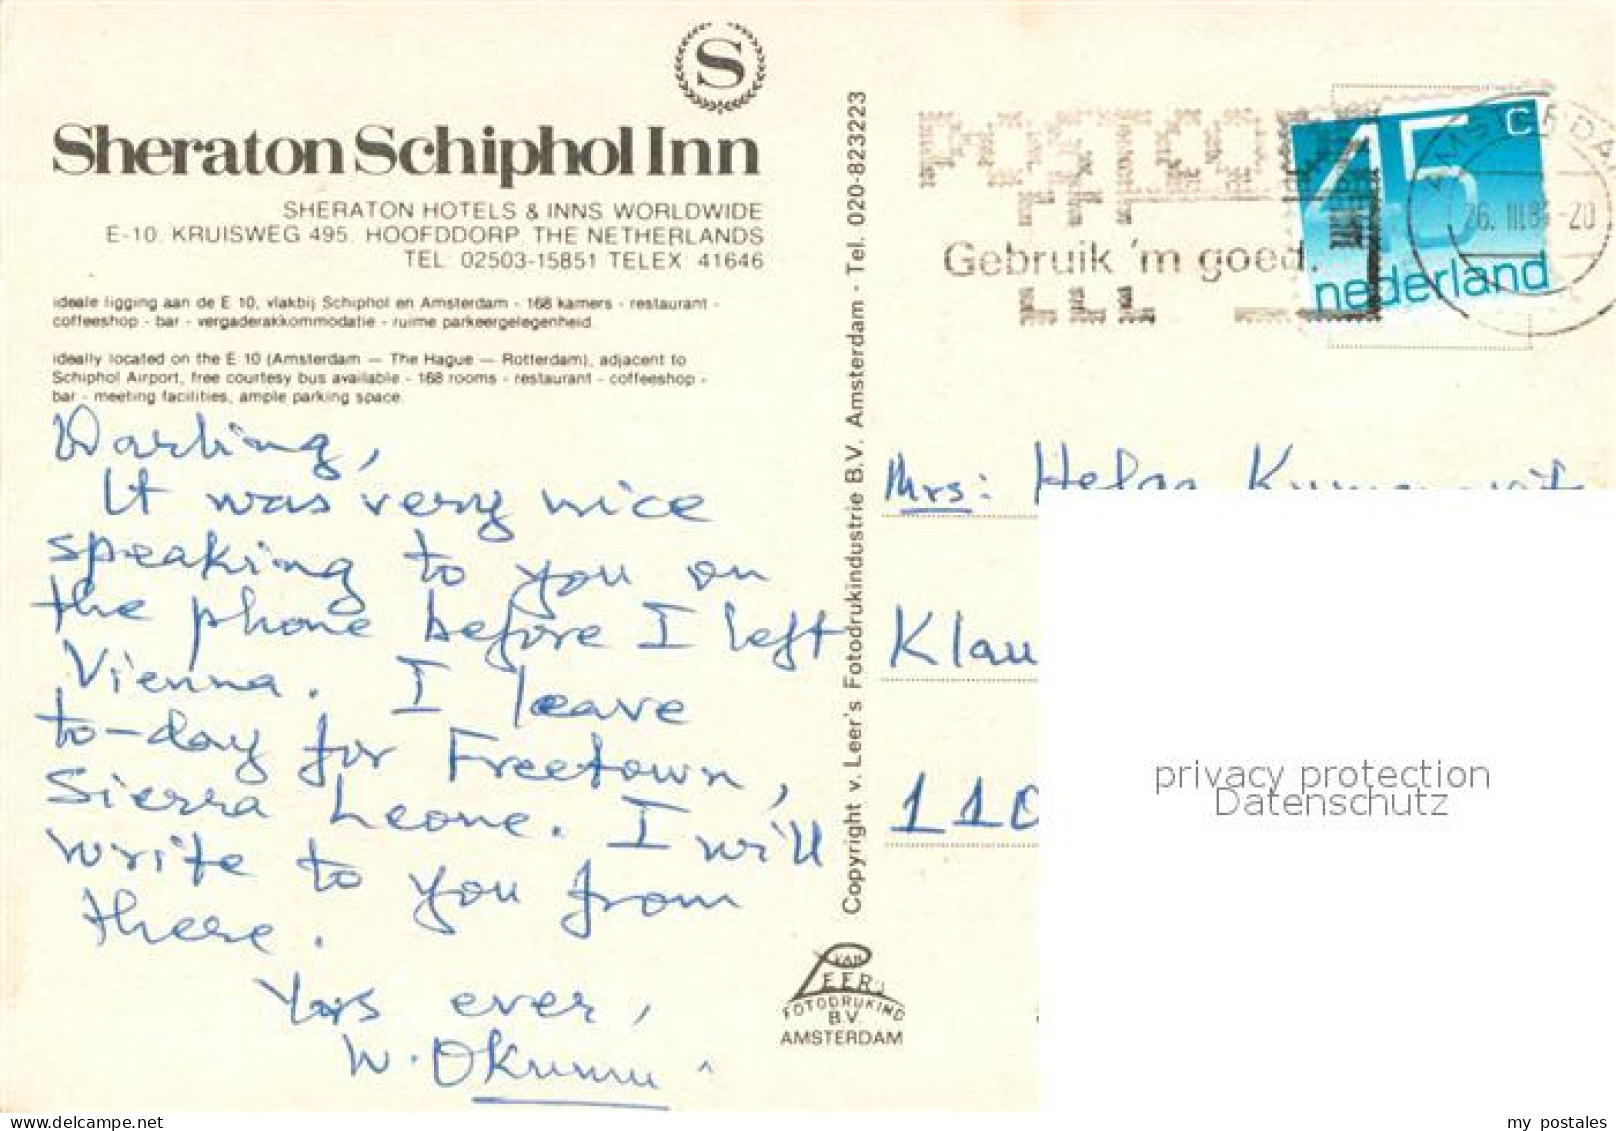 S
Sheraton Schiphol Inn
SHERATON HOTELS & INNS WORLDWIDE
E-10. KRUISWEG 495. HOOFDDORP. THE NETHERLANDS
TEL. 02503-15851 TELEX. 41646
ideale ligging aan de E 10, vlakbij Schiphol en Amsterdam - 168 kamers - restaurant -
coffeeshop - bar - vergaderakkommodatie - ruime parkeergelegenheid.
ideally located on the E 10 (Amsterdam — The Hague — Rotterdam), adjacent to
Schiphol Airport, free courtesy bus available - 168 rooms - restaurant - coffeeshop -
bar - meeting facilities, ample parking space.
Darling,
It was very nice
speaking to you on
the phone before I left
Vienna. I leave
to-day for Freetown,
Sierra Leone. I will
write to you from
there.
Yrs ever,
W. Okumu.
Copyright v. Leer's Fotodrukindustrie B.V. Amsterdam - Tel. 020-823223
VAN
LEER'S
FOTODRUKIND
B.V.
AMSTERDAM
POSTCODE
Gebruik 'm goed.
45 c
nederland
AMSTERDAM
26. III.8 -20
Mrs: Helga
Klau
110
privacy protection
Datenschutz
my postales